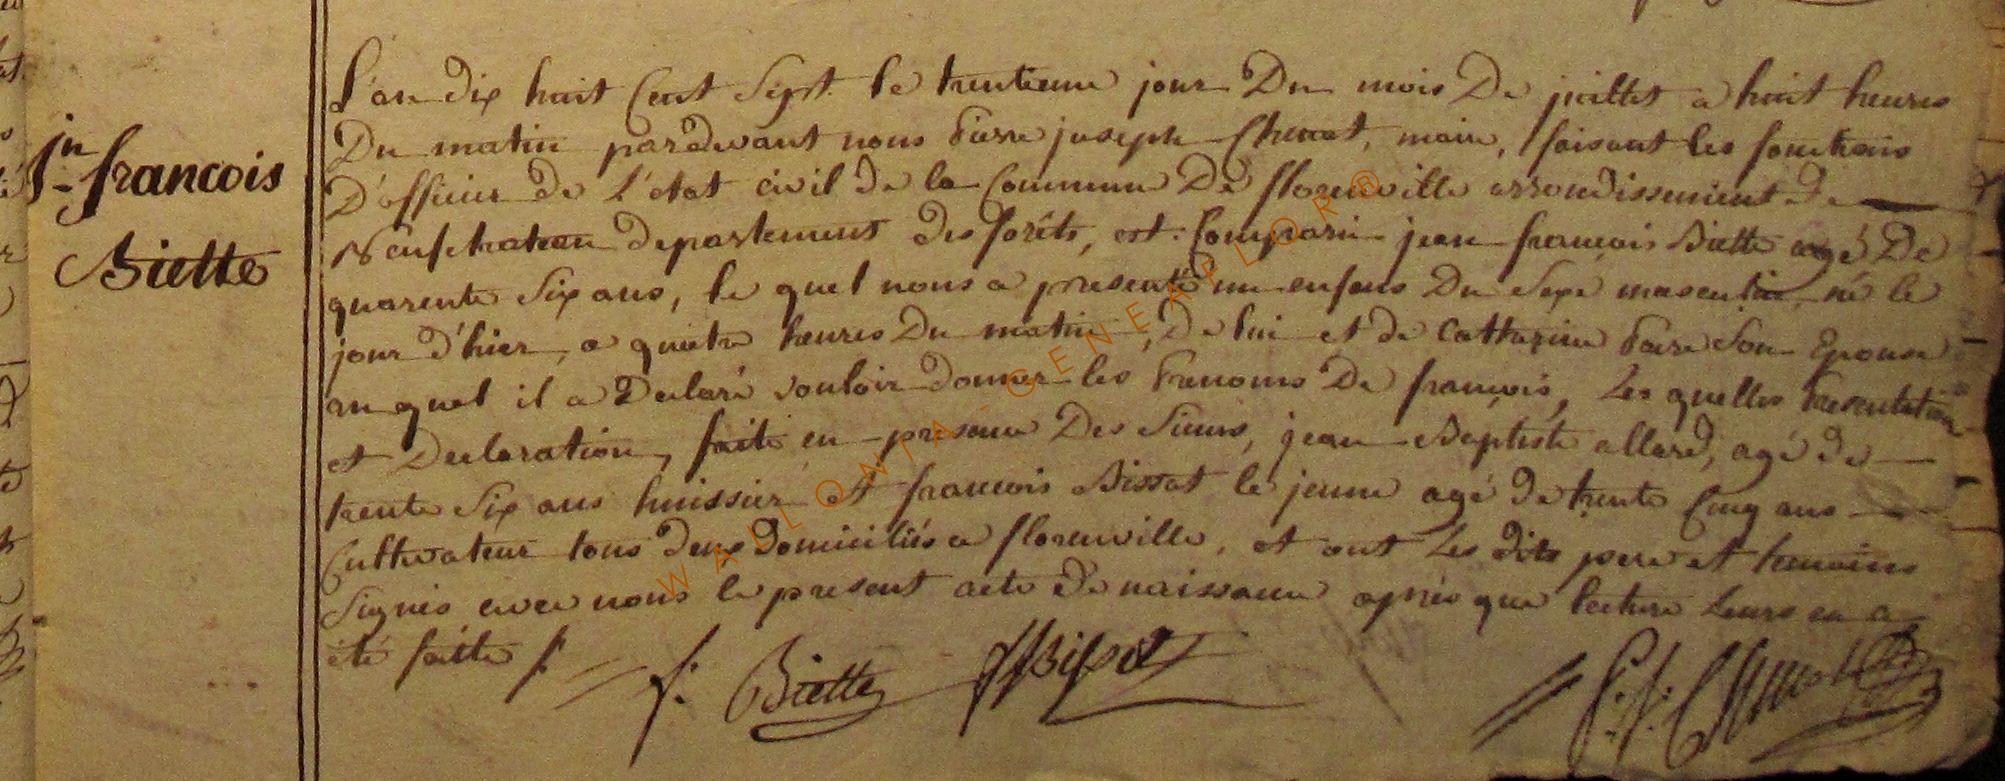 Jn françois
Biette
L'an dix huit Cent Sept. le trentieme jour Du mois De juillet a huit heures
Du matin pardevant nous Pierre joseph maire, faisant les fonctions
D'officier de L'état civil de la Commune De florenville arrondissement de
Neufchateau departement des forêts, est Comparu jean françois Biette agé De
quarente Six ans, le quel nous a presenté un enfans Du Sexe masculin, né le
jour d'hier, a quatre heures Du matin, De lui et de Catherine son Epouse
auquel il a Declaré vouloir donner les Prenoms De françois, Les quelles Presentation
et Declaration, faite en presence Des Sieurs, jean Baptiste allard, agé de
trente Six ans huissier et françois Bissot le jeune agé de trente Cinq ans
Cultivateur tous deux Domiciliés a florenville, et ont Les dits pere et temoins
Signés avec nous le present acte de naissance après que lecture Leurs en a
été faitte
f: Biette ffBissot P: J:
WALLONIA-GENEAFLOR®